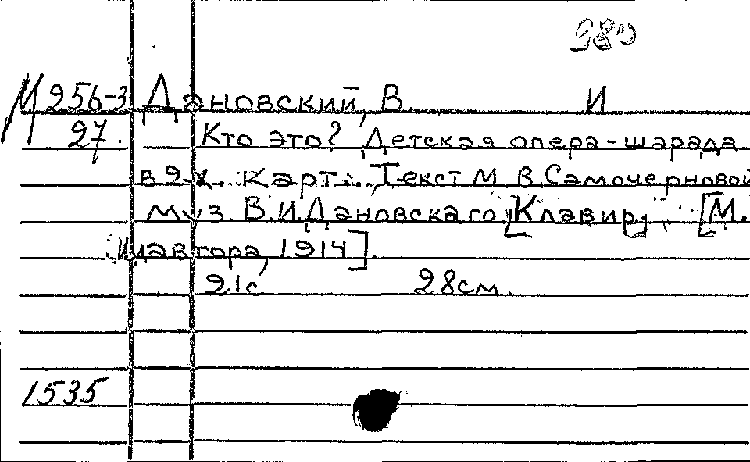 980
М 256-3 Дановский, В. И
27 Кто это? Детская опера-шарада
в 2-х карт. Текст М. В. Самочерновой
муз. В. И. Дановскаго. [Клавир]. [М.
автора, 1914].
21с 28см.
1535